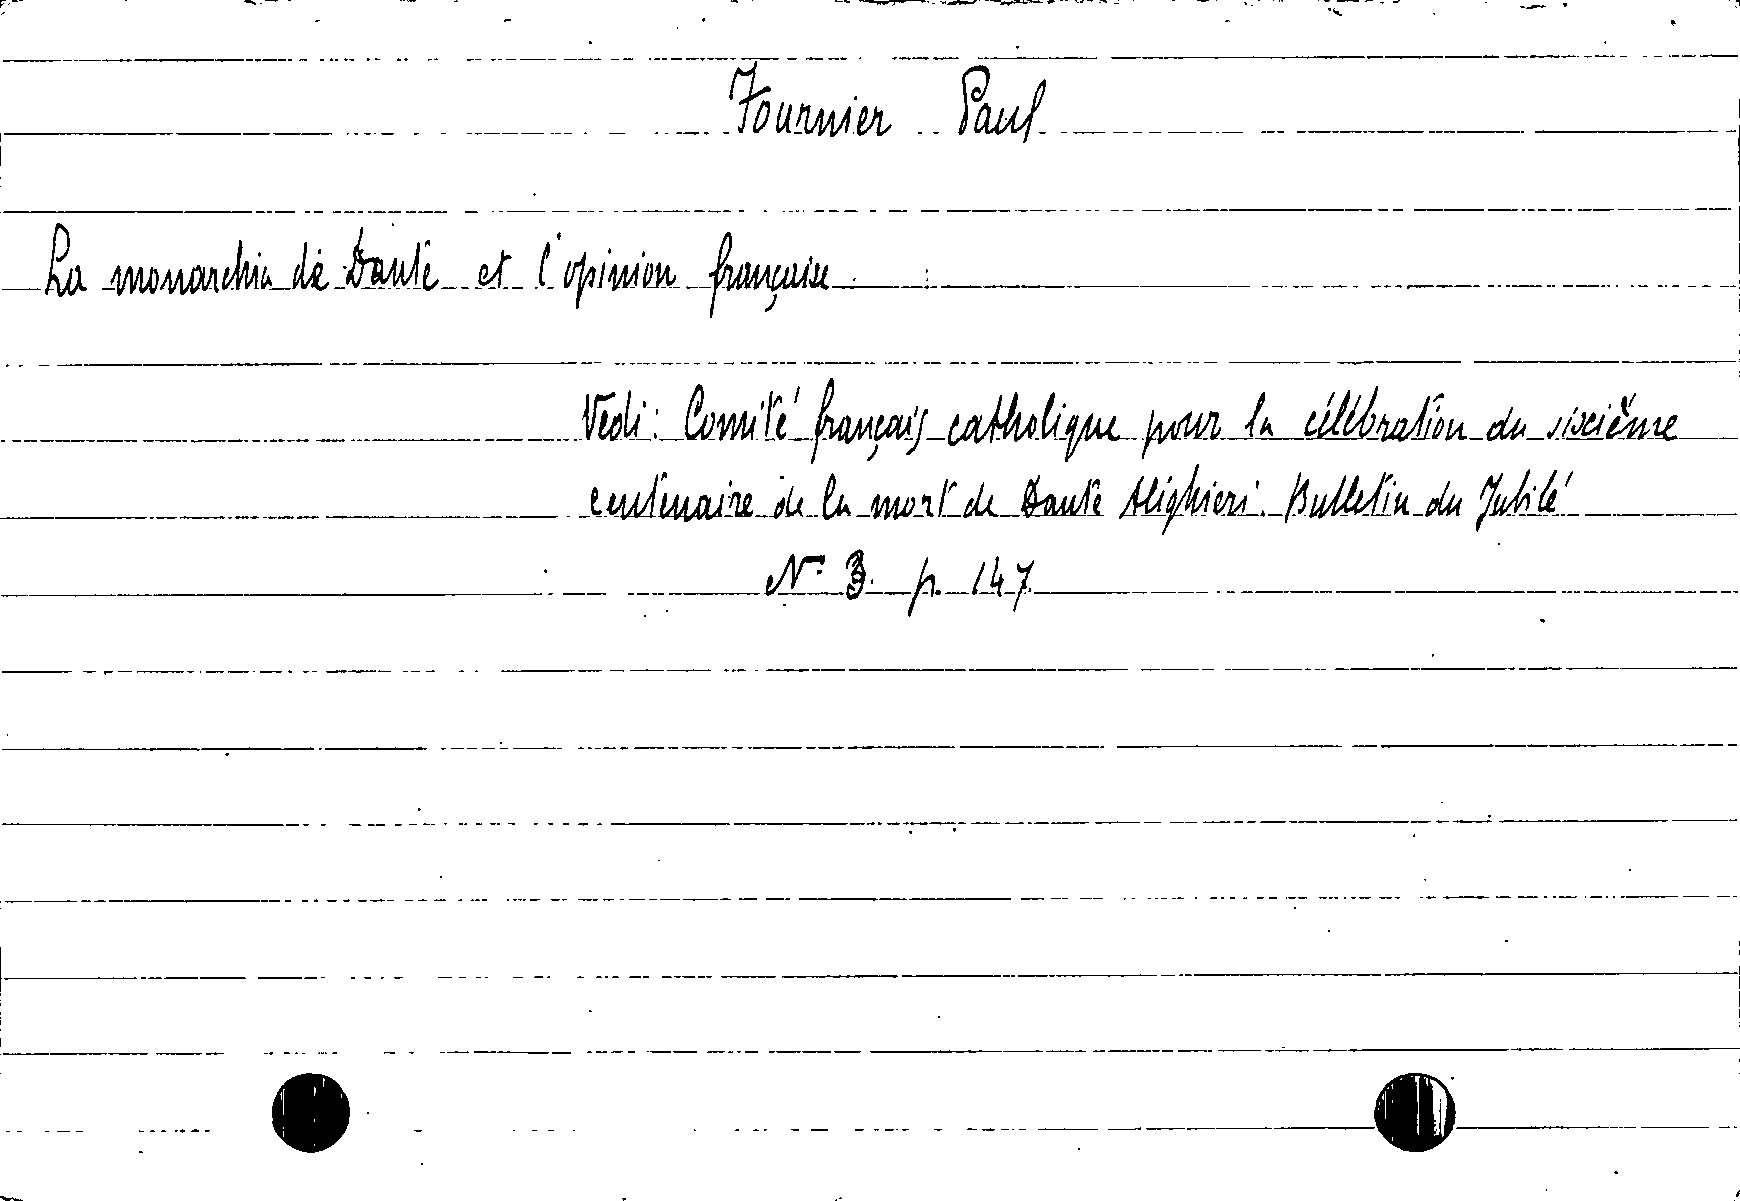 Fournier Paul
La monarchia de Dante et l'opinion française.
Vedi: Comité français catholique pour la célébration du sixième
centenaire de la mort de Dante Alighieri. Bulletin du Jubilé
N.° 3. p. 147